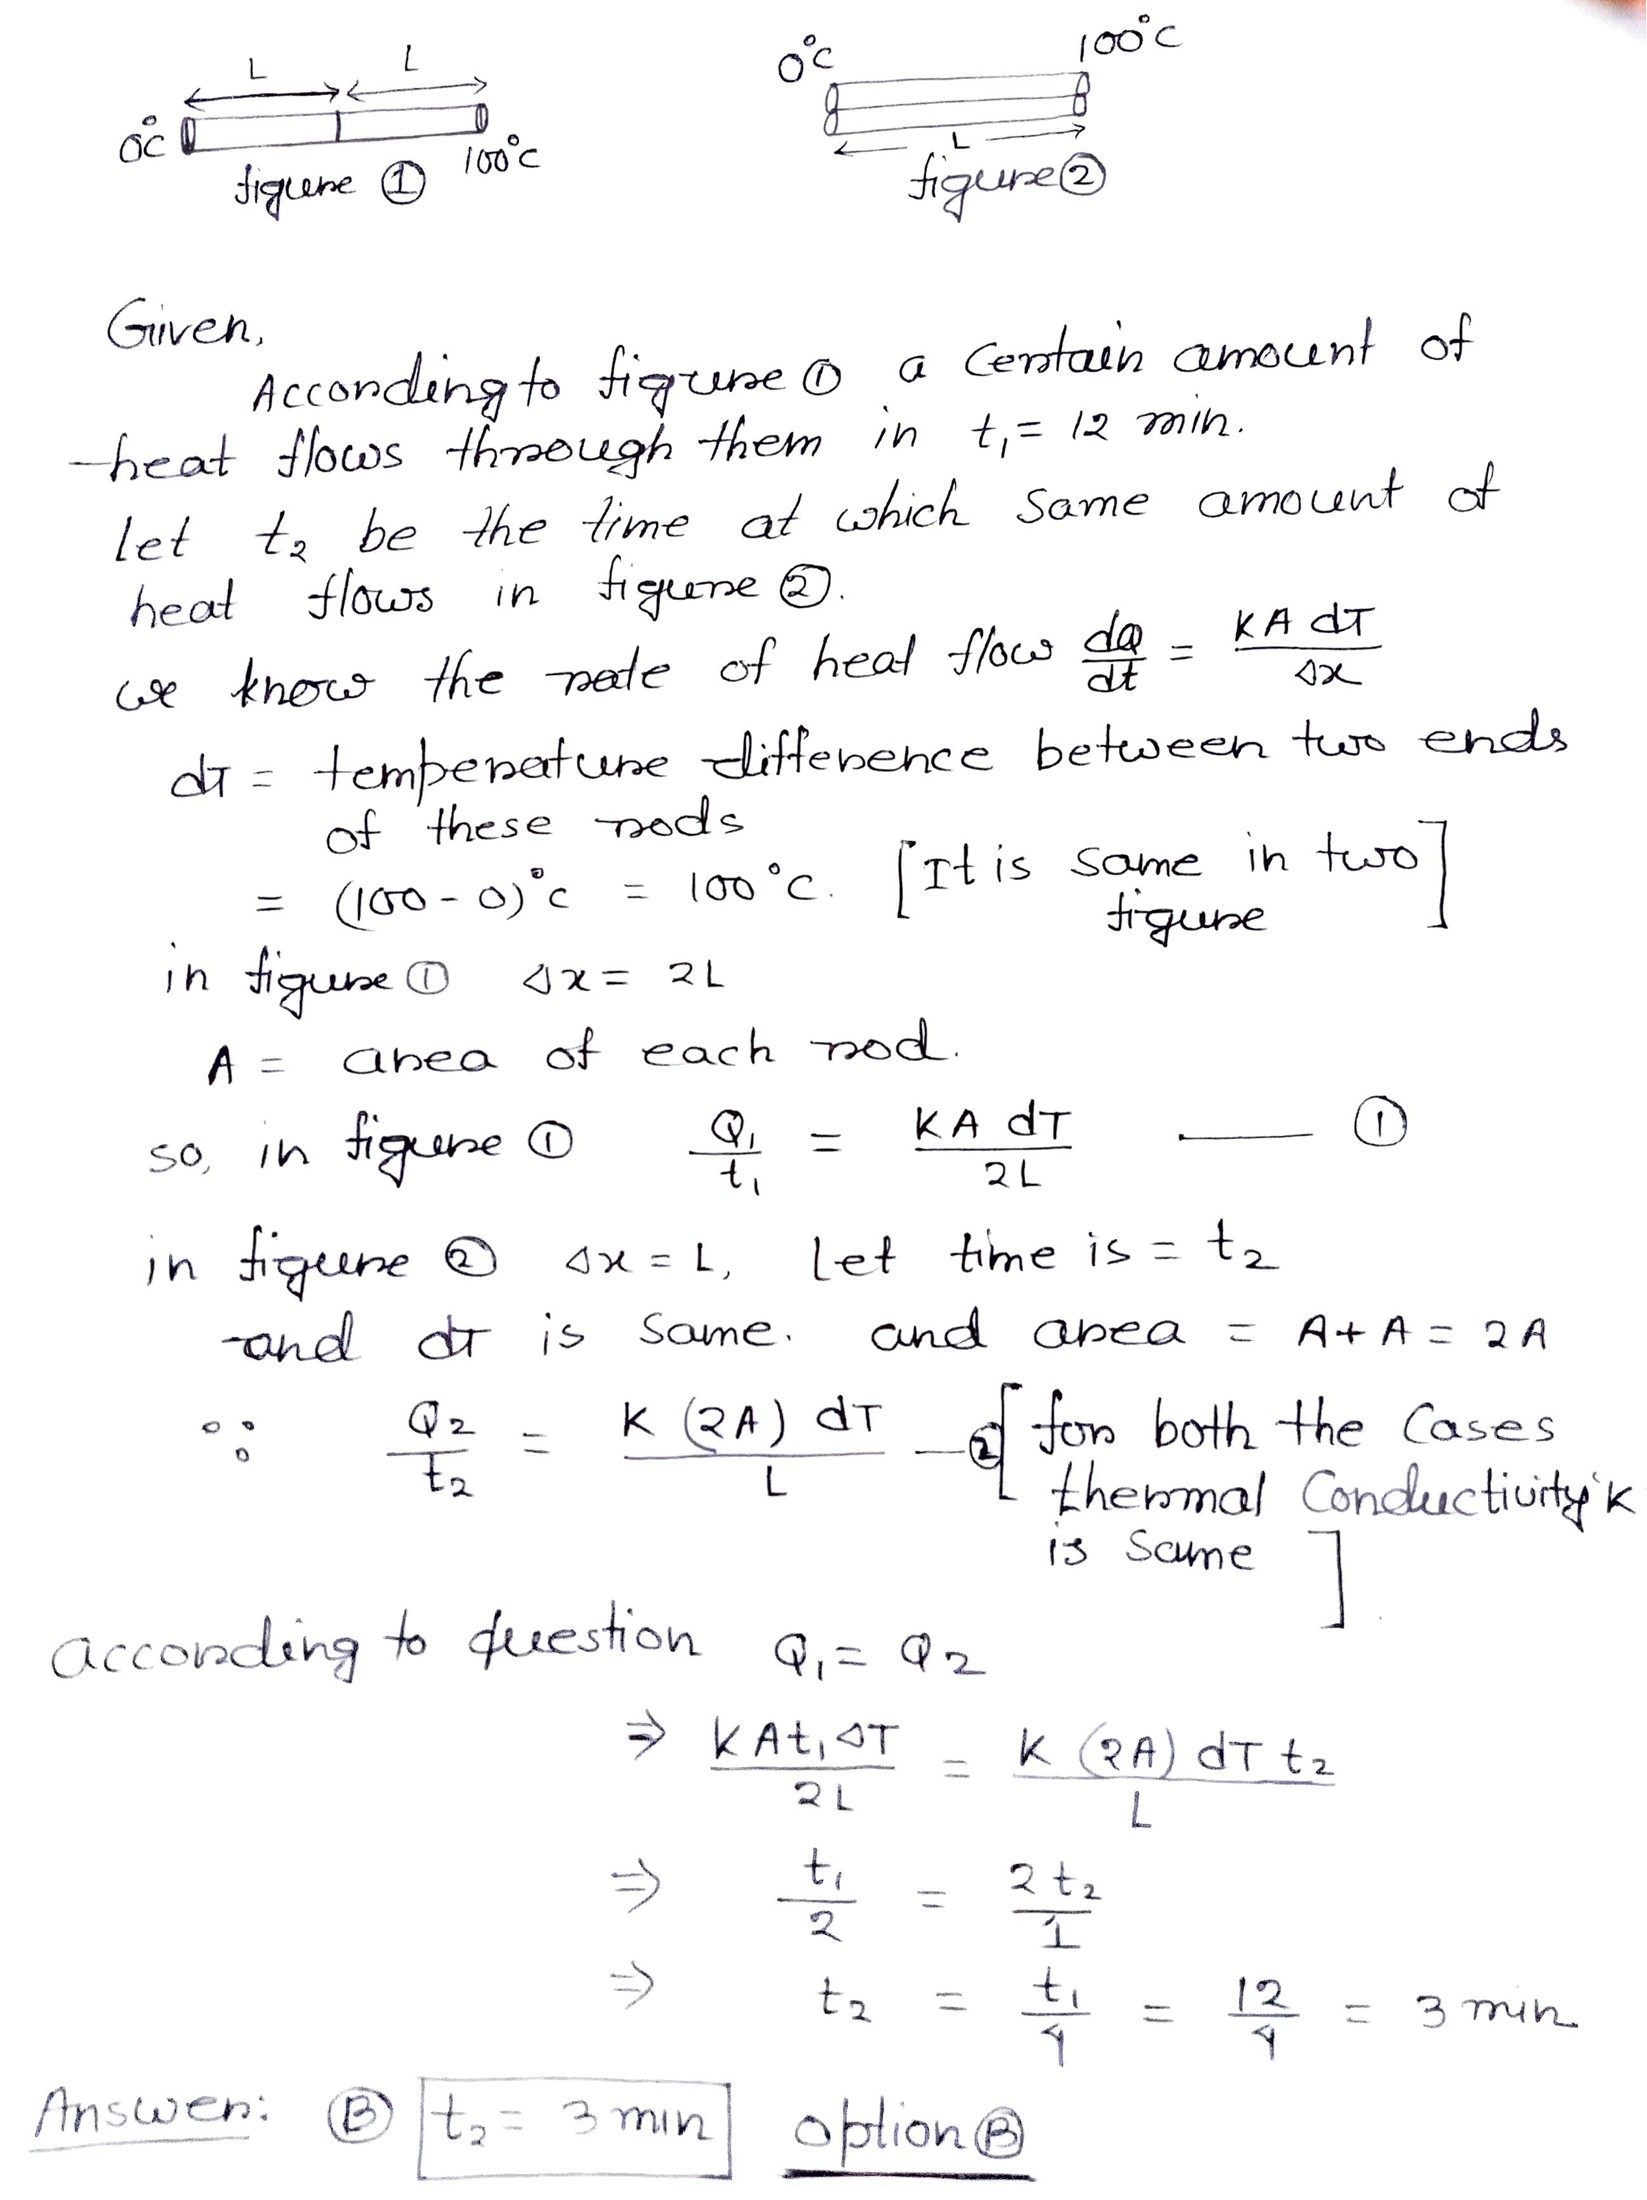 L L
0°C
100°C
figure ①
0°C 100°C
L
figure ②
Given,
According to figure ① a certain amount of
heat flows through them in t₁ = 12 min.
Let t₂ be the time at which same amount of
heat flows in figure ②.
we know the rate of heat flow dQ/dt = KA dT/Δx
dT = temperature difference between two ends
of these rods
= (100 - 0)°C = 100°C. [It is same in two figure]
in figure ① Δx = 2L
A = area of each rod.
so, in figure ① Q₁/t₁ = KA dT/2L —— ①
in figure ② Δx = L, Let time is = t₂
and dT is same. and area = A + A = 2A
∵ Q₂/t₂ = K (2A) dT/L — ② [for both the cases
thermal conductivity 'K
is same]
according to question Q₁ = Q₂
⇒ KAt₁ΔT/2L = K (2A) dT t₂/L
⇒ t₁/2 = 2t₂/1
⇒ t₂ = t₁/4 = 12/4 = 3 min.
Answer: Ⓑ t₂ = 3 min option Ⓑ